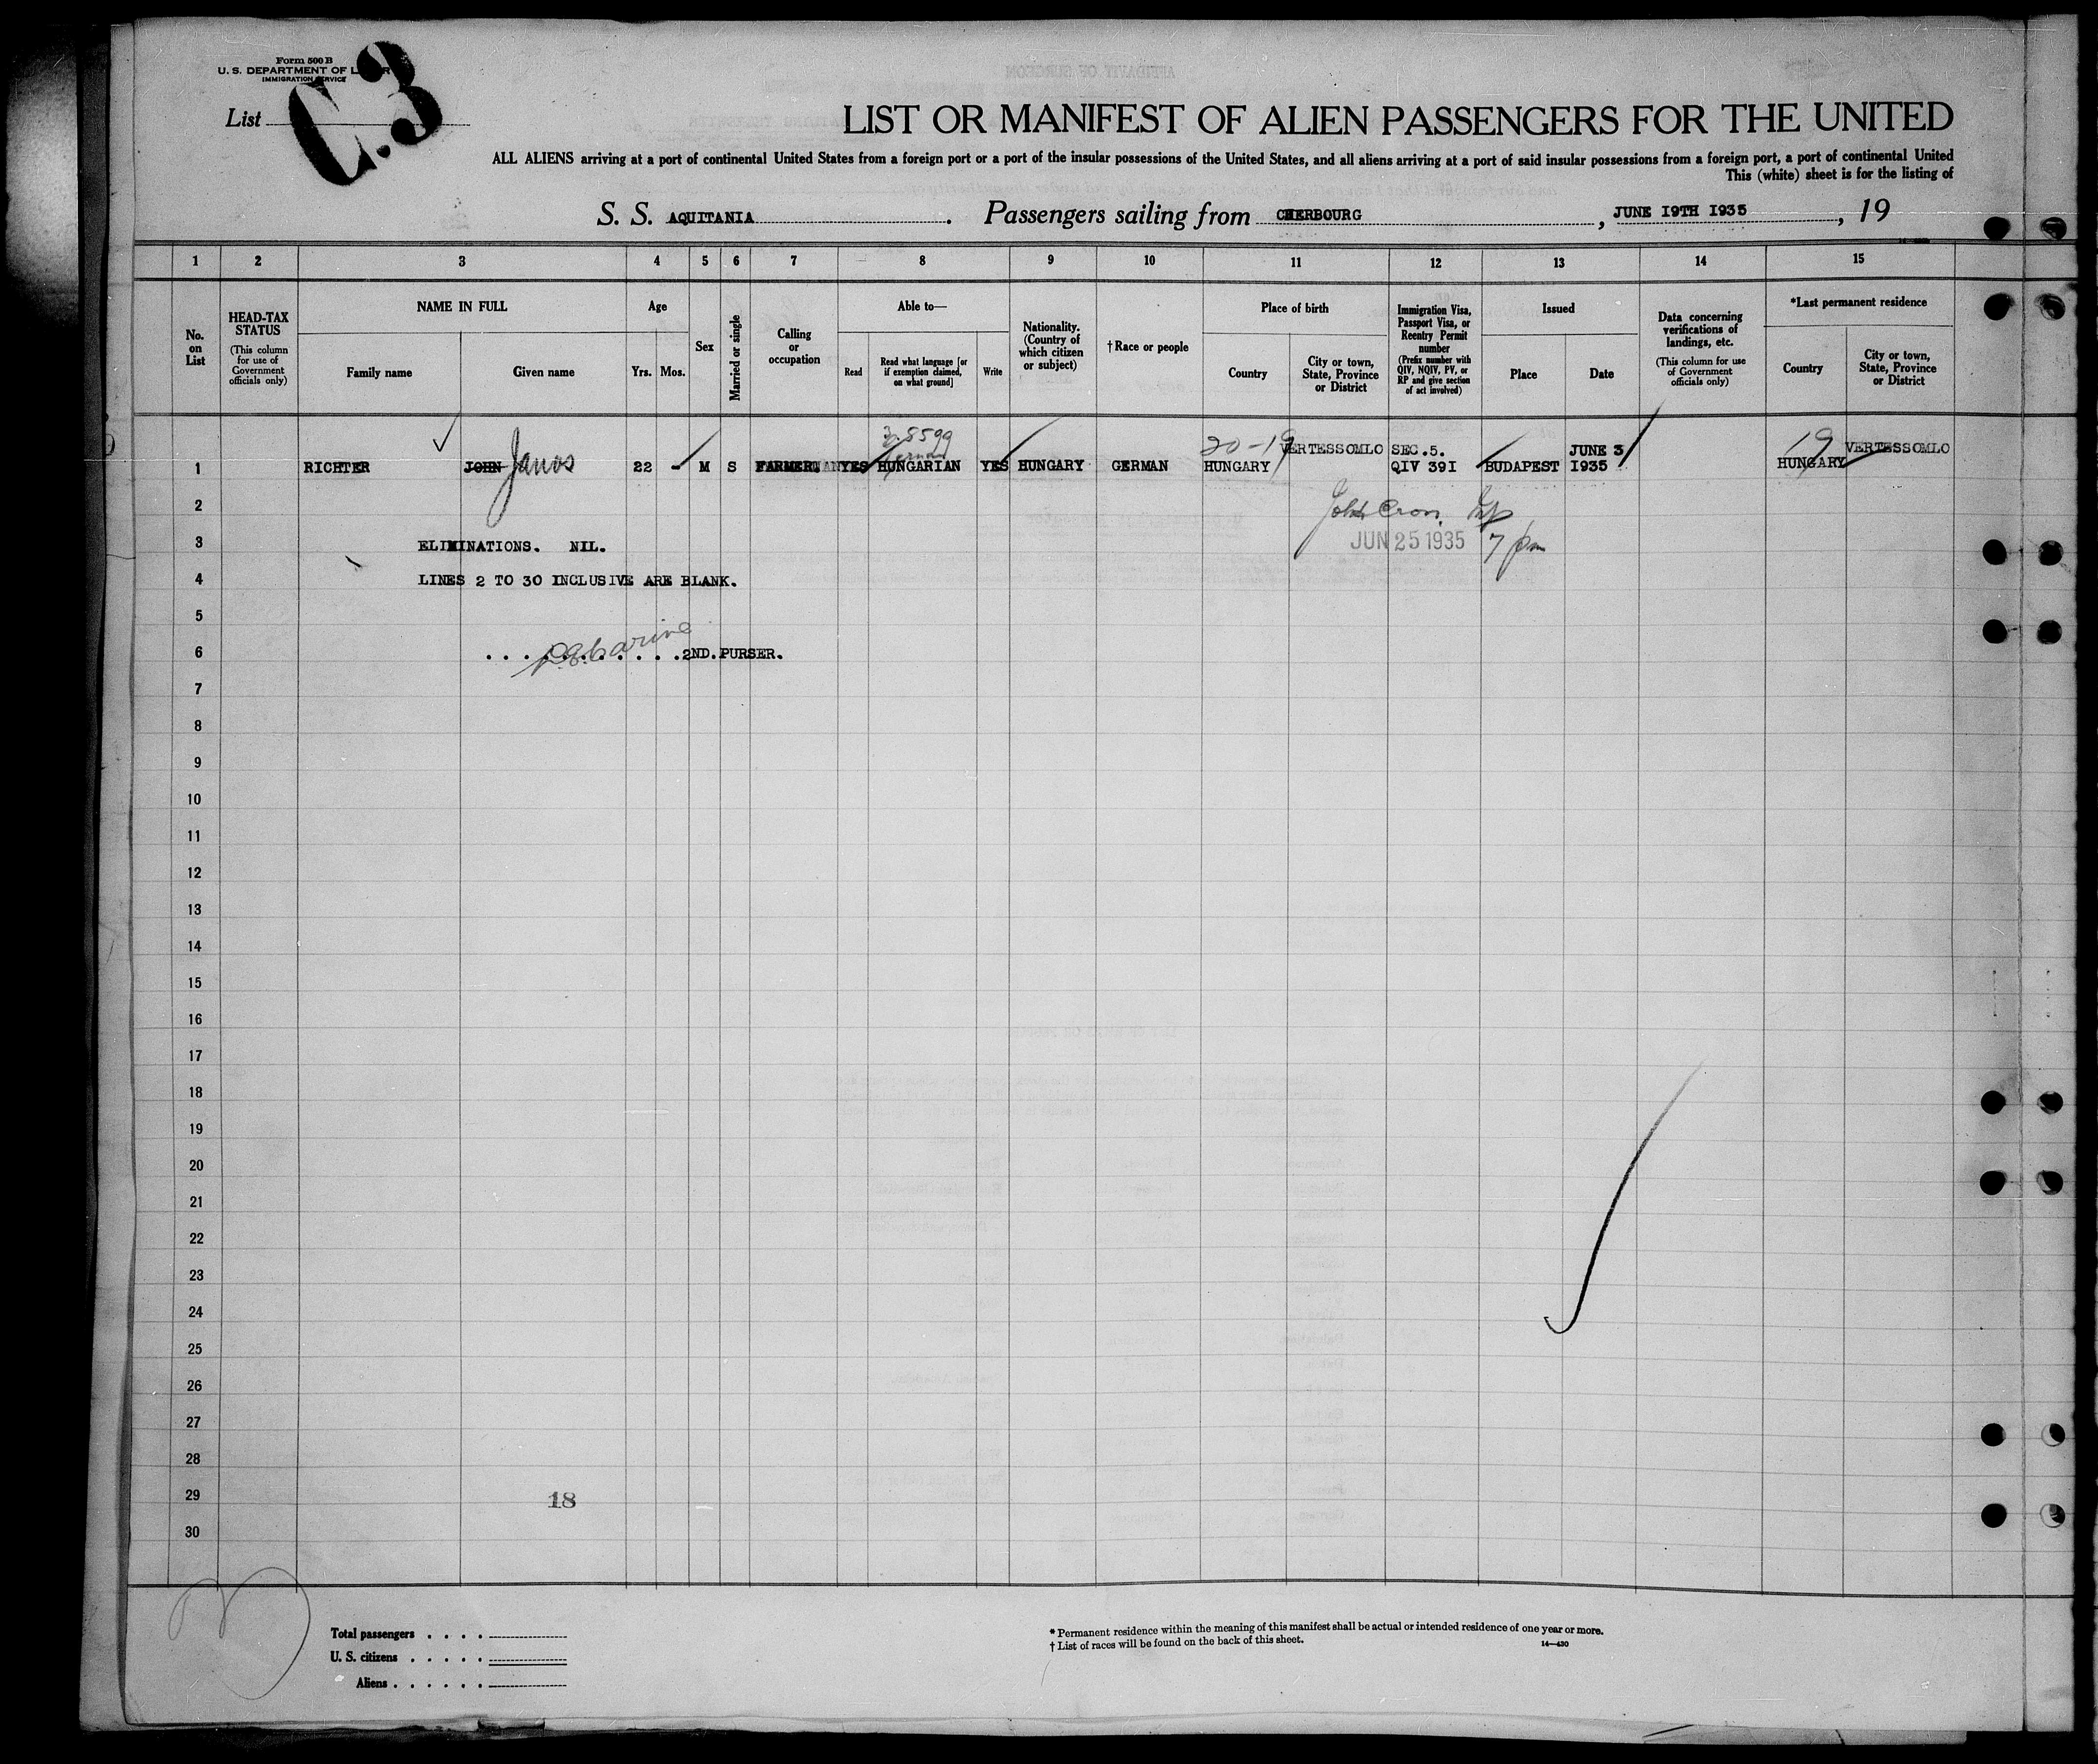 Form 500 B
U. S. DEPARTMENT OF LABOR
IMMIGRATION SERVICE
List C.3
LIST OR MANIFEST OF ALIEN PASSENGERS FOR THE UNITED
ALL ALIENS arriving at a port of continental United States from a foreign port or a port of the insular possessions of the United States, and all aliens arriving at a port of said insular possessions from a foreign port, a port of continental United
This (white) sheet is for the listing of
S. S. AQUITANIA. Passengers sailing from CHERBOURG, JUNE I9TH I935, 19
1 2 3 4 5 6 7 8 9 10 11 12 13 14 15
No. on List
HEAD-TAX STATUS
(This column for use of Government officials only)
NAME IN FULL
Family name
Given name
Age
Yrs.
Mos.
Sex
Married or single
Calling or occupation
Able to—
Read
Read what language [or if exemption claimed, on what ground]
Write
Nationality. (Country of which citizen or subject)
†Race or people
Place of birth
Country
City or town, State, Province or District
Immigration Visa, Passport Visa, or Reentry Permit number
(Prefix number with QIV, NQIV, PV, or RP and give section of act involved)
Issued
Place
Date
Data concerning verifications of landings, etc.
(This column for use of Government officials only)
*Last permanent residence
Country
City or town, State, Province or District
3.8599
20-19 VERTESSOMLO SEC.5. JUNE 3 19 VERTESSOMLO
1 RICHTER JOHN Janos 22 - M S FARMER YES HUNGARIAN YES HUNGARY GERMAN HUNGARY QIV 39I BUDAPEST I935 HUNGARY
2 John Cron
3 ELIMINATIONS. NIL. JUN 25 1935 7 pm
4 LINES 2 TO 30 INCLUSIVE ARE BLANK.
5
6 2ND.PURSER.
7
8
9
10
11
12
13
14
15
16
17
18
19
20
21
22
23
24
25
26
27
28
29 18
30
Total passengers . . . .
U. S. citizens . . . . .
Aliens . . . . . .
* Permanent residence within the meaning of this manifest shall be actual or intended residence of one year or more.
† List of races will be found on the back of this sheet.
14—430